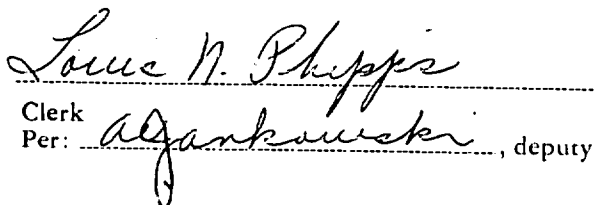 Louis N. Phipps
Clerk
Per: A Jankowski, deputy